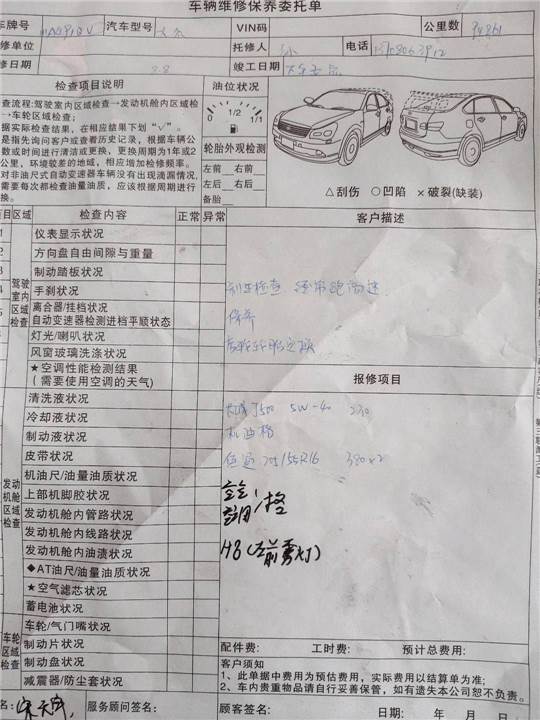 车辆维修保养委托单
车牌号 汽车型号 VIN码 公里数 94861
修单位 托修人 电话
修日期 竣工日期
检查项目说明
油位状况
查流程:驾驶室内区域检查→发动机舱内区域检
→车轮区域检查;
据实际检查结果，在相应结果下划“√”。
是指先询问客户或查看历史记录，根据车辆公
数或时间进行清洁或更换，更换周期为1年或2
公里，环境较差的地域，相应增加检修频率。
对非油尺式自动变速器车辆没有出现滴漏情况，
需要每次都检查油量油质，应该根据周期进行
换。
0 1/2 1/1
轮胎外观检测
左前 右前
左后 右后
备胎
△刮伤 ○凹陷 ×破裂(缺装)
项目 区域 检查内容 正常 异常 客户描述
1 仪表显示状况
2 方向盘自由间隙与重量
3 制动踏板状况
驾驶室内区域检查
手刹状况
离合器/挂档状况
自动变速器检测进档平顺状态
灯光/喇叭状况
风窗玻璃洗涤状况
★空调性能检测结果
(需要使用空调的天气)
刹车检查 经常跑高速
保养
报修项目
清洗液状况
冷却液状况
制动液状况
皮带状况
发动机舱区域检查
机油尺/油量油质状况
上部机脚胶状况
发动机舱内管路状况
发动机舱内线路状况
发动机舱内油渍状况
◆AT油尺/油量油质状况
★空气滤芯状况
蓄电池状况
长城J500 5W-40 230
机油格
205/55R16 380×2
H8(左前雾灯)
车轮区域检查
车轮/气门嘴状况
制动片状况
制动盘状况
减震器/防尘套状况
配件费: 工时费: 预计总费用:
客户须知
1、此单据中费用为预估费用，实际费用以结算单为准;
2、车内贵重物品请自行妥善保管，如有遗失本公司恕不负责。
名: 服务顾问签名: 顾客签名: 日期: 年 月